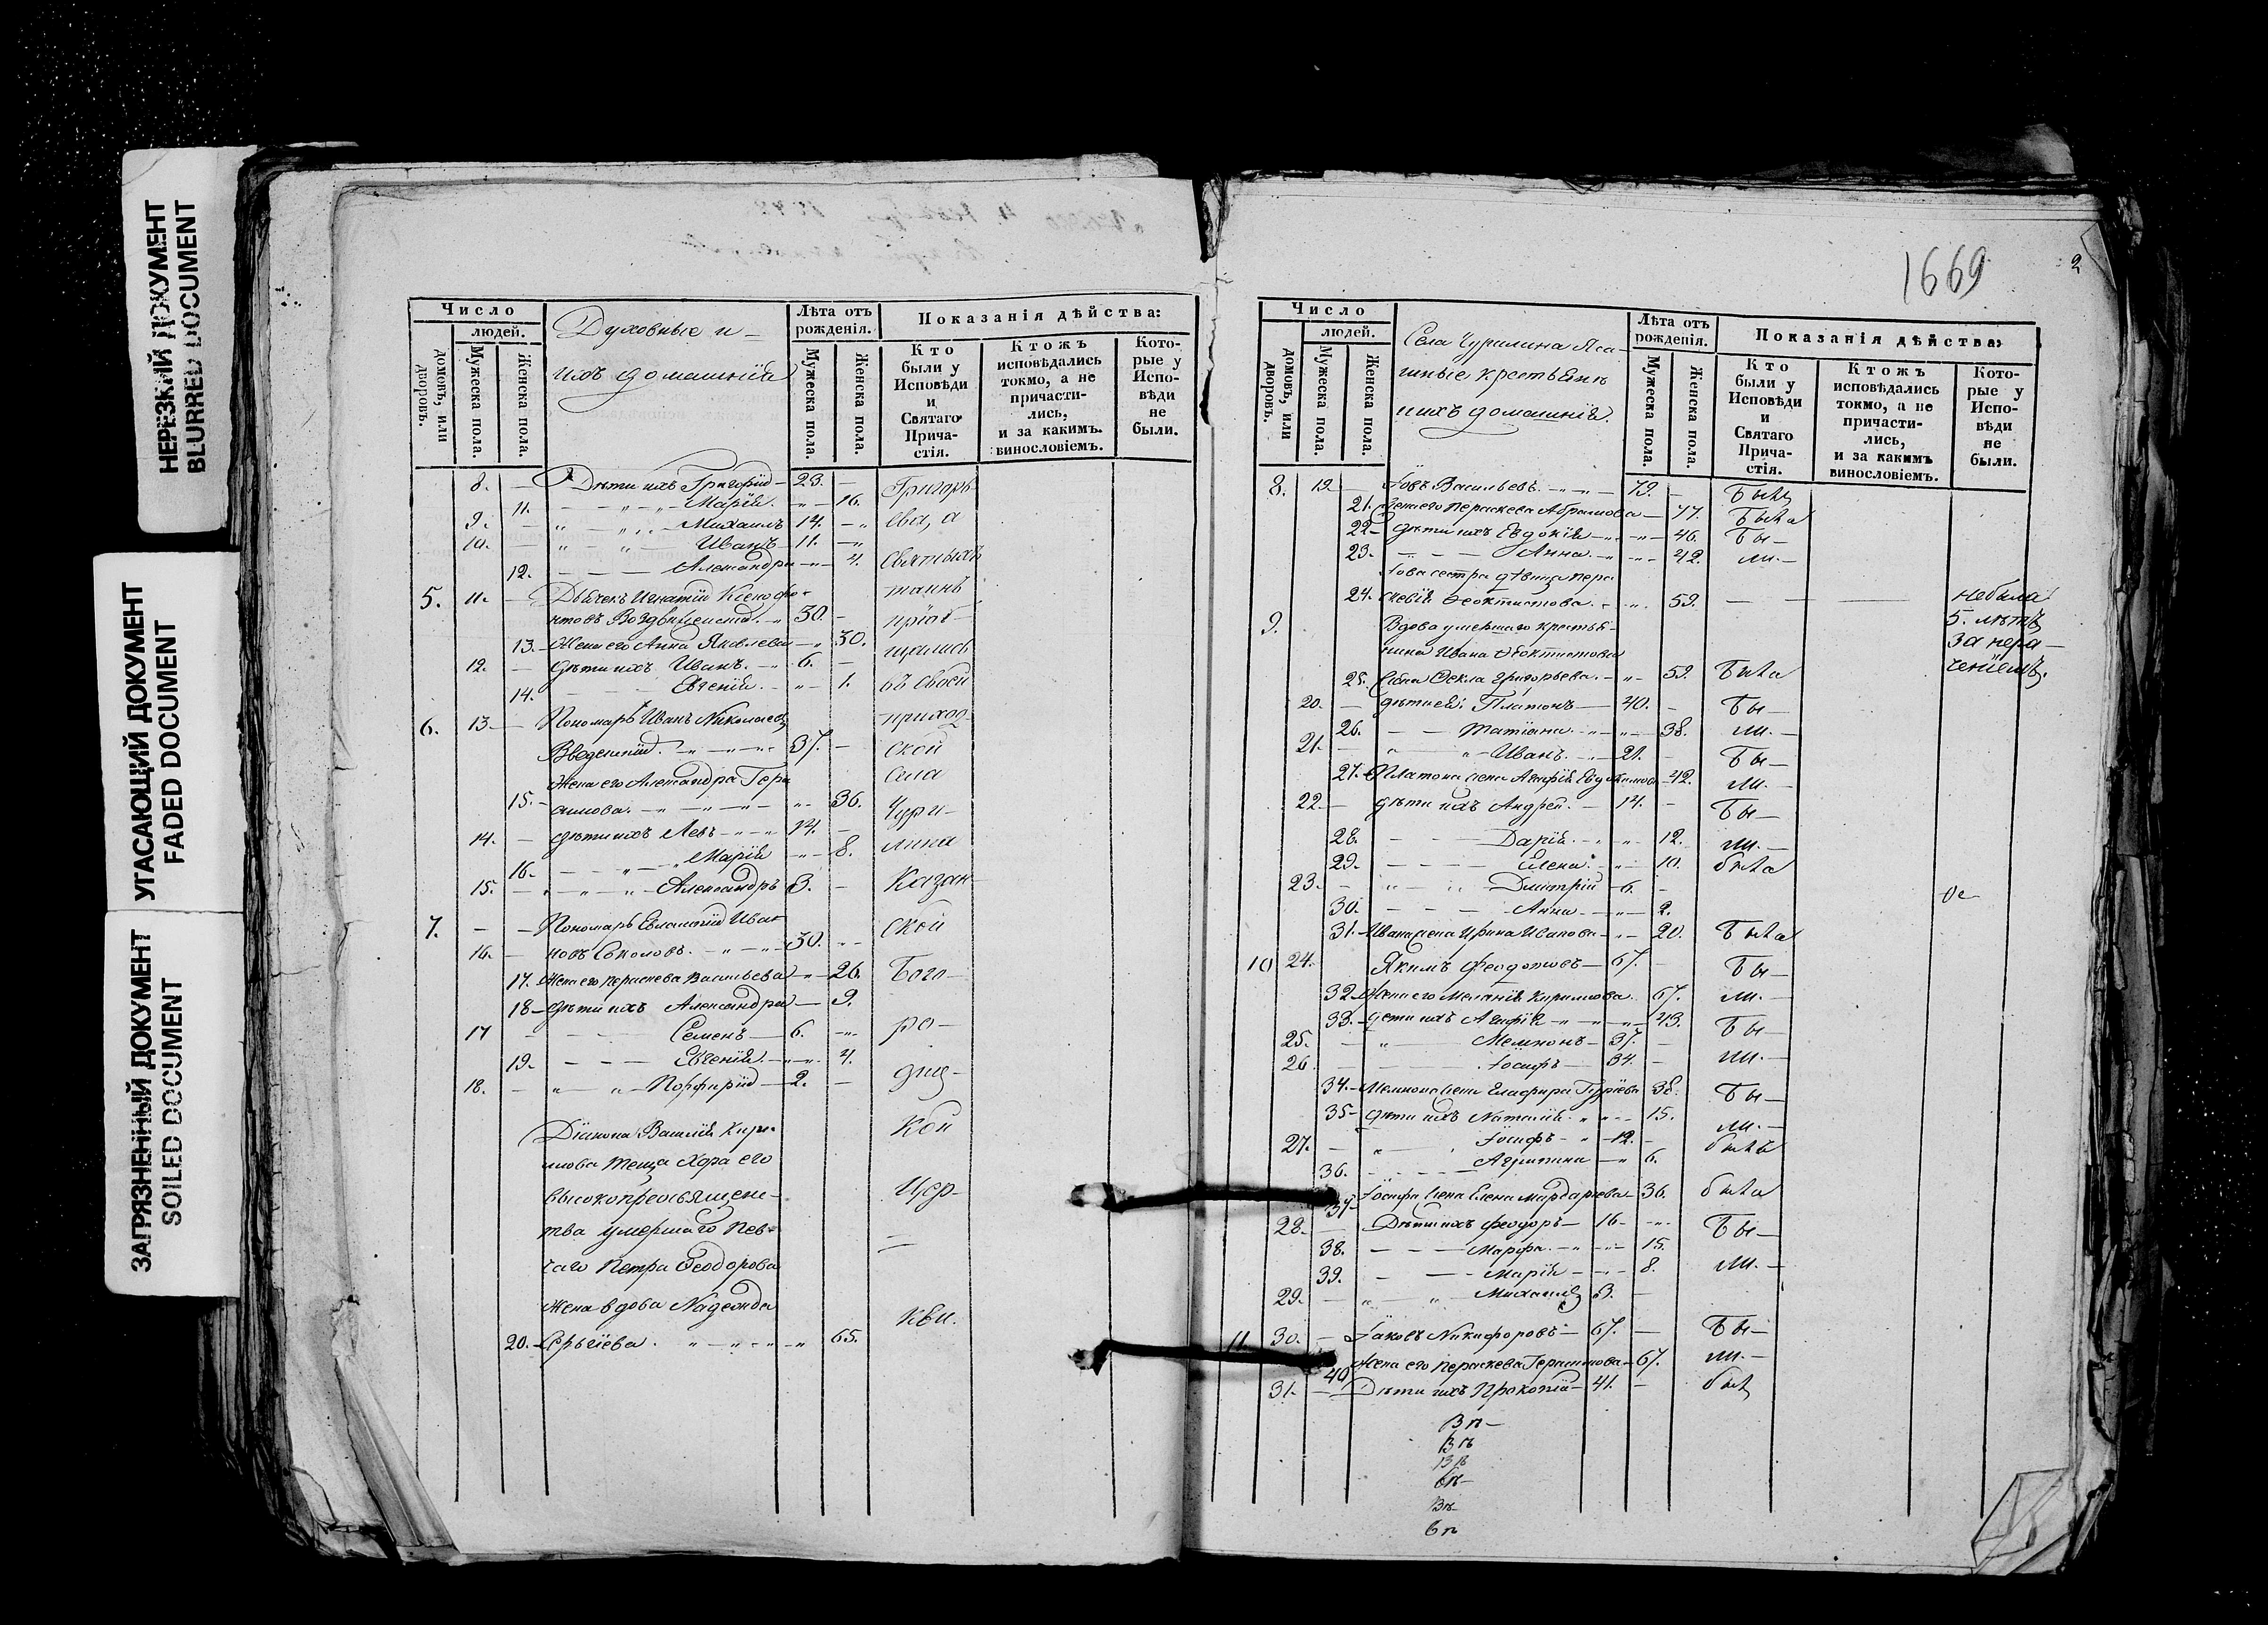 НЕРЕЗКИЙ ДОКУМЕНТ
BLURRED DOCUMENT
УГАСАЮЩИЙ ДОКУМЕНТ
FADED DOCUMENT
ЗАГРЯЗНЕННЫЙ ДОКУМЕНТ
SOILED DOCUMENT
Число
людей.
домовъ, или дворовъ.
Мужеска пола.
Женска пола.
Духовные и
ихъ домашнія
Лѣта отъ рожденія.
Мужеска пола.
Женска пола.
Показанія дѣйства:
Кто были у Исповѣди и Святаго Прича- стія.
Ктожъ исповѣдались токмо, а не причасти- лись, и за какимъ винословіемъ.
Кото- рые у Испо- вѣди не были.
8. — Дѣти ихъ Григорій — 23. — Григорь
11. — „ — „ — Марія. — „ — 16.
9. — „ „ — Михаилъ 14. — „ ева, а
10. — „ — „ — Иванъ — 11. — „
12. — — — Александра — „ — 4. святыхъ
5. 11. — Дьячекъ Игнатій Ксенофо- таинъ
нтовъ Воздвиженскій. „ 30. — пріоб-
13. Жена его Анна Яковлева — „ 30. щились
12. — дѣти ихъ Иванъ. — „ 6. —
14. Евгенія. — „ — 1. въ своей
6. 13 — Пономарь Иванъ Николаевъ приход-
Введенскій. — „ — „ — 37. — ской
Жена его Александра Гера села
15. — симова. — „ — „ — „ — 36. Чури-
14. — дѣти ихъ Левъ — „ — 14. —
16. — — „ — Марія — „ — 8. лина
15. — „ — „ — Александръ 3. — Казан-
7. — — Пономарь Евлампій Ива- ской
16. — новъ Соколовъ. — „ — „ 30. — „
17. Жена его Параскева Васильева — „ — 26. Бого-
18 — дѣти ихъ Александра — 9.
17 — — — Семенъ — 6. — „ ро-
19. — — — Евгенія. — „ — „ 4.
18. — „ „ — Порфирій — 2. — диц-
Діакона Василія Кири- кой
ллова теща Хора его
высокопреосвящен- Цер-
тва умершаго пев-
чаго Петра Ѳеодорова
жена вдова Надежда кви.
20. — Сергіева. „ — „ — „ — „ 65.
1669
2
Число
людей.
домовъ, или дворовъ.
Мужеска пола.
Женска пола.
Села Чурилина Яса-
шные крестьяне
и ихъ домашнія.
Лѣта отъ рожденія.
Мужеска пола.
Женска пола.
Показанія дѣйства:
Кто были у Исповѣди и Святаго Прича- стія.
Ктожъ исповѣдались токмо, а не причасти- лись, и за какимъ винословіемъ.
Кото- рые у Испо- вѣди не были.
8. 19 — Іовъ Васильевъ. — „ — „ — 79. — Былъ
21. Жена его Параскева Абрамова — 77. Была
22 — дѣти ихъ Евдокія — „ — „ — 46. Бы —
23. — — — Анна. — „ — „ — 42. ли. —
Іова сестра дѣвица Пара
24. скевія Ѳеоктистова. — „ — 59. — — не была
5. лѣтъ
9. Вдова умершаго крестья- за нера —
нина Ивана Ѳеоктистова ченіемъ.
25. жена Ѳекла Григорьева. — „ — 59. Была
20. — дѣти ея: Платонъ — 40. — Бы —
26. — — Татіана. — „ — „ — 38. ли. —
21. — „ „ — Иванъ. — 21. — Бы —
27. Платона жена Агафія Евдокимова — 42. ли. —
22 — дѣти ихъ Андрей. — 14. — Бы —
28. — — — Дарія. — „ — „ — 12. ли. —
29. — — — Елена. — „ — 10. была
23. — „ — „ — Дмитрій — 6. —
30. — — — Анна — — „ — 2.
31. — Ивана жена Ирина Иванова — „ — 20. Была
10 24. Якимъ Ѳеодотовъ — 67. — Бы —
32 Жена его Меланія Кириллова. 67. ли. —
33. — дѣти ихъ Агафія — „ — „ — 43. Бы —
25. — „ Мемнонъ — 37. —
26 Іосифъ — 34. — ли. —
34. — Мемнона жена Глафира Гурьева 38. Бы —
35 — дѣти ихъ Наталія. „ — „ — 15. ли. —
27. — „ — Іосифъ — „ — 12. — былъ
36. — — — Агрипина — „ 6.
37 Іосифа жена Елена Мардарьева 36. была
28. — Дѣти ихъ Ѳеодоръ — 16 — — „ Бы —
38. — — — Марфа. — „ — „ — 15.
39. — — — Марія — „ — 8. ли. —
29. — „ „ — Михаилъ 3. —
11 30. — Іаковъ Никифоровъ — 67. — Бы —
40 Жена его Параскева Герасимова — 67. ли. —
31. — Дѣти ихъ Прокопій — 41. — былъ